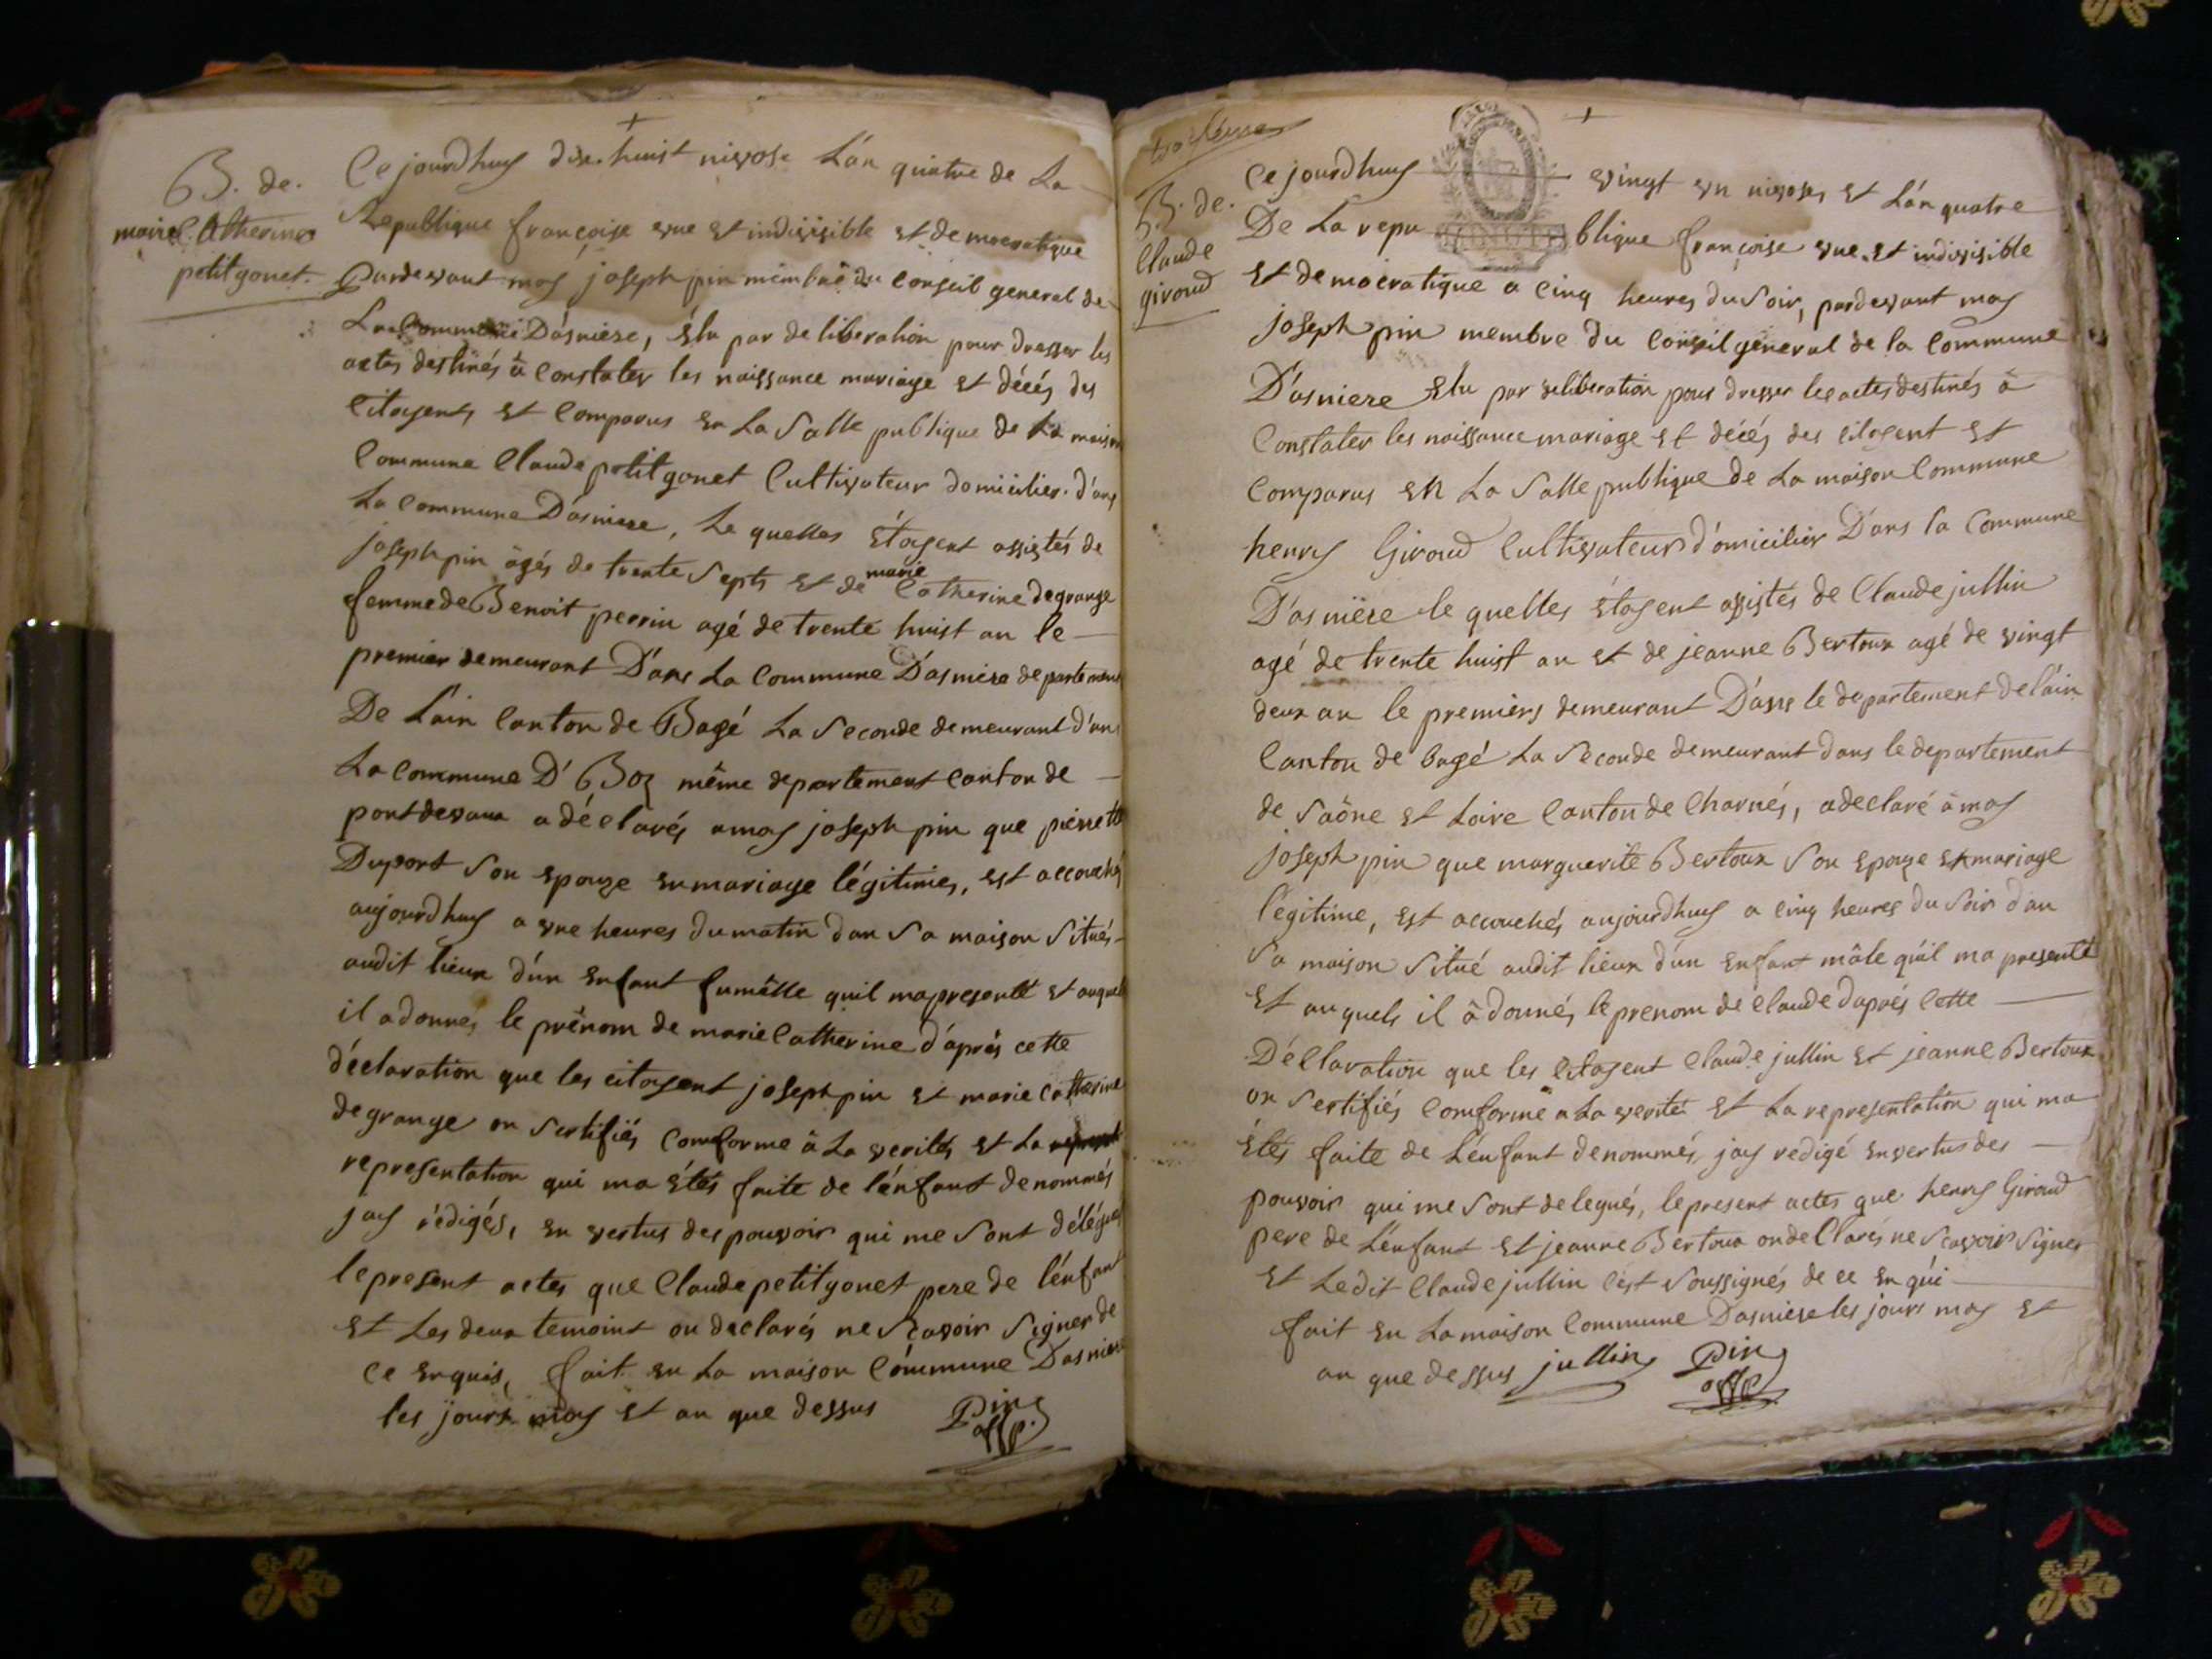 B. de.
marie Catherine
petitgonet.
Ce jourdhuy dix huist nivose L'an quatre de La
Republique françoise vne et indivisible et democratique
Pardevant moy joseph pin membre du Conseil general de
La Commune D'asniere, Élu par deliberation pour dresser les
actes destinés à Constater les naissance mariage et décés des
Citoyents et Comparus en La Salle publique de La maison
Commune Claude petitgonet Cultivateur domicilier. d'ans
La Commune D'asniere, Le quelles étoyent assistés de
joseph pin âgés de trente Septs et de marie Catherine degrange
femme de Benoit perrin agé de trente huist an le
premier demeurant D'ans La Commune D'asniere departement
De L'ain Canton de Bagé La Seconde demeurant d'ans
La Commune D'Boz même departement Canton de
pontdevaux a déclarés a moy joseph pin que pierrette
Duport Son Epouze en mariage légitimes, est accouchés
aujourdhuy a vne heures du matin dan Sa maison Situés
audit lieux d'un Enfant fumêlle quil ma presentt et auquel
il a donnés le prénom de marie Catherine d'aprés cette
déclaration que les citoyent joseph pin et marie Catherine
degrange on Sertifiés Comforme à La verités et La
representation qui ma étés faite de l'enfant denommés
jay rédigés, en vertus des pouvoir qui me Sont délégués
le present actes que Claude petitgonet pere de l'enfant
et Les deux temoint on declarés ne Sçavoir Signer de
Ce enquis, fait en La maison Cómmune Dasniere
les jours moy et an que dessus Pin
offp.
troisieme
B. de.
Claude
giroud
Ce jourdhuy vingt vn nivoses et L'an quatre
De La repu blique françoise vne et indivisible
et democratique a Cinq heures du Soir, pardevant moy
joseph pin membre du Conseil general de la Commune
D'asniere Elu par deliberation pour dresser les actes destinés à
Constater les naissance mariage et décés des citoyent et
Comparus en La Salle publique de La maison Commune
henry Giroud Cultivateur d'omicilier D'ans la Commune
D'asniére le quelles étoyent assistés de Claude jullin
agé de trente huist an et de jeanne Bertoux agé de vingt
deux an le premiers demeurant D'ans le departement de l'ain
Canton de bagé La Seconde demeurant dans le departement
de Saône et Loire Canton de Charnés, a declaré à moy
joseph pin que marguerite Bertoux Son Epouze en mariage
légitime, est accouchés aujourdhuy a cinq heures du Soir d'an
Sa maison Situé audit lieux d'un Enfant mâle qu'il ma presentté
et au quels il â donnés le prenom de Claude d'aprés Cette
Déclaration que les Citoyent Claude jullin et jeanne Bertoux
on Sertifiés Comforme a La verité et La representation qui ma
étés faite de L'enfant denommés jay redigé en vertus des
pouvoir qui me Sont delegués, le present actes que henry Giroud
pere de L'enfant et jeanne Bertoux on declarés ne Scavoir Signer
et Ledit Claude jullin C'est Soussignés de ce en qúi
fait en La maison Commune Dasniere les jours moy et
an que dessus jullin Pin
offp